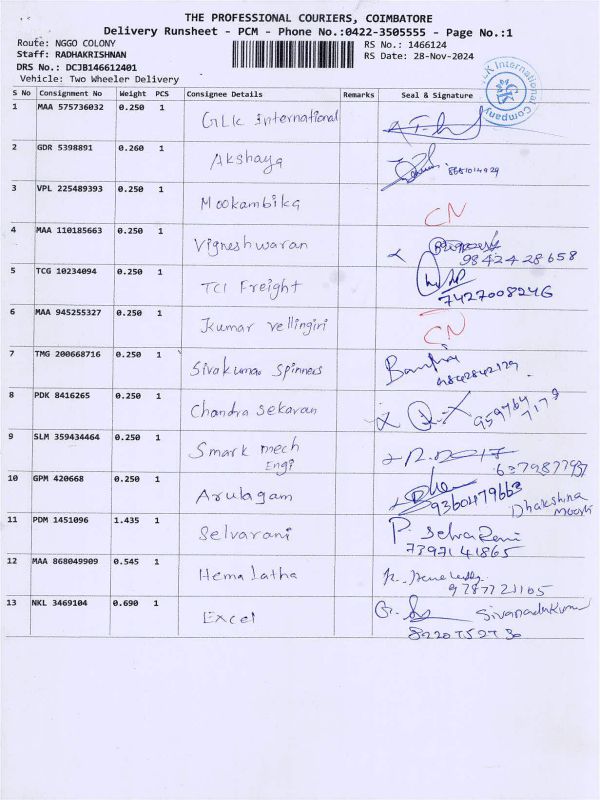 THE PROFESSIONAL COURIERS, COIMBATORE
Delivery Runsheet - PCM - Phone No.:0422-3505555 - Page No.:1
Route: NGGO COLONY RS No.: 1466124
Staff: RADHAKRISHNAN RS Date: 28-Nov-2024
DRS No.: DCJB146612401
Vehicle: Two Wheeler Delivery
International Company
S No Consignment No Weight PCS Consignee Details Remarks Seal & Signature
1 MAA 575736032 0.250 1 GLK International
2 GDR 5398891 0.260 1 Akshaya
3 VPL 225489393 0.250 1 Mookambika CN
4 MAA 110185663 0.250 1 Vigneshwaran 9842428658
5 TCG 10234094 0.250 1 TCI Freight 7427008246
6 MAA 945255327 0.250 1 Kumar vellingiri CN
7 TMG 200668716 0.250 1 Sivakumar Spinners
8 PDK 8416265 0.250 1 Chandra sekaran
9 SLM 359434464 0.250 1 Smark mech
Engi 6379877937
10 GPM 420668 0.250 1 Arulagam 9360479663 Dhakshina
Moorthi
11 PDM 1451096 1.435 1 Selvarani P. Selva Rani
7397141865
12 MAA 868049909 0.545 1 Hema latha
9787721105
13 NKL 3469104 0.690 1 Excel
8220752730